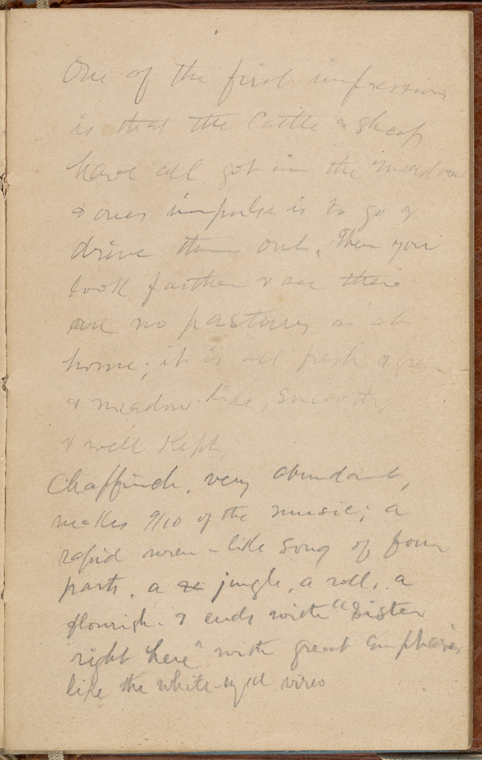 One of the first impressions
is that the Cattle & sheep
have all got in the meadow
& ones impulse is to go &
drive them out. Then you
look farther & see there
are no pastures as at
home; it is all fresh & green
& meadow-like, smooth
& well Kept.
Chaffinch, very abundant,
makes 9/10 of the music; a
rapid wren-like song of four
parts. a jingle, a roll, a
flourish & ends with "Sister
right here" with great emphasis
like the white-eyed vireo